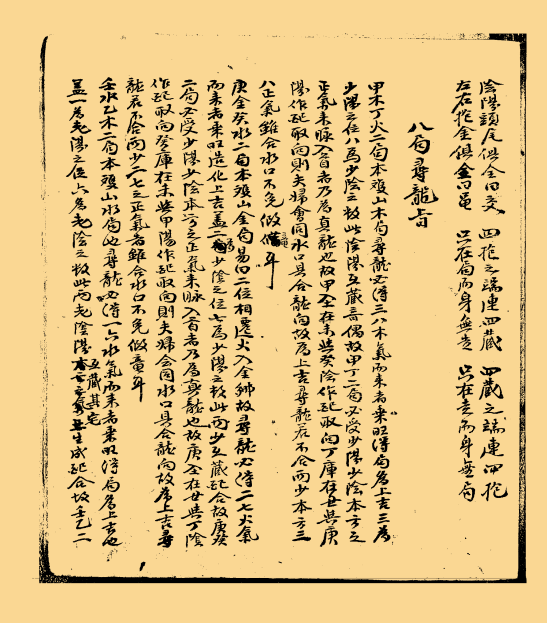 陰陽頭尾俱金曰交 四推之端連四藏 四藏之端連四推
左右推金俱金曰黽 只在局而身無 只在而身無局
八局尋龍訣
甲木丁火二局本雙山木局尋龍必得三八木氣而來者乘旺得局為上吉三為
少陽之位八為少陰之數此陰陽互藏竒偶故甲丁二局必受少陽少陰本方之
正氣來脉入首者乃為真龍也故甲在未與癸陰作配取向丁庫在丑與庚
陽作配取向則夫婦會同水口具合龍向故為上吉尋龍若不合両少本方三
八正氣雖合水口不免做耳
庚金癸水二局本雙山金局易曰二位相遷火入金鄉故尋龍必得二七火氣
而來者乘旺造化上吉蓋二為少陰之位七為少陽之數此両少互藏配合故庚癸
二局必受少陽少陰本方之正氣來脉入首者乃為真龍也故庚在丑與丁陰
作配取向癸庫在未與甲陽作配取向則夫婦會同水口具合龍向故為上吉尋
龍若不合両少二七之正氣者雖合水口不免做耳
壬水乙木二局本雙山水局也尋龍必得一六水氣而來者乘旺得局為上吉也
蓋一為老陽之位六為老陰之數此両老陰陽互藏其宅生成配合故壬乙二